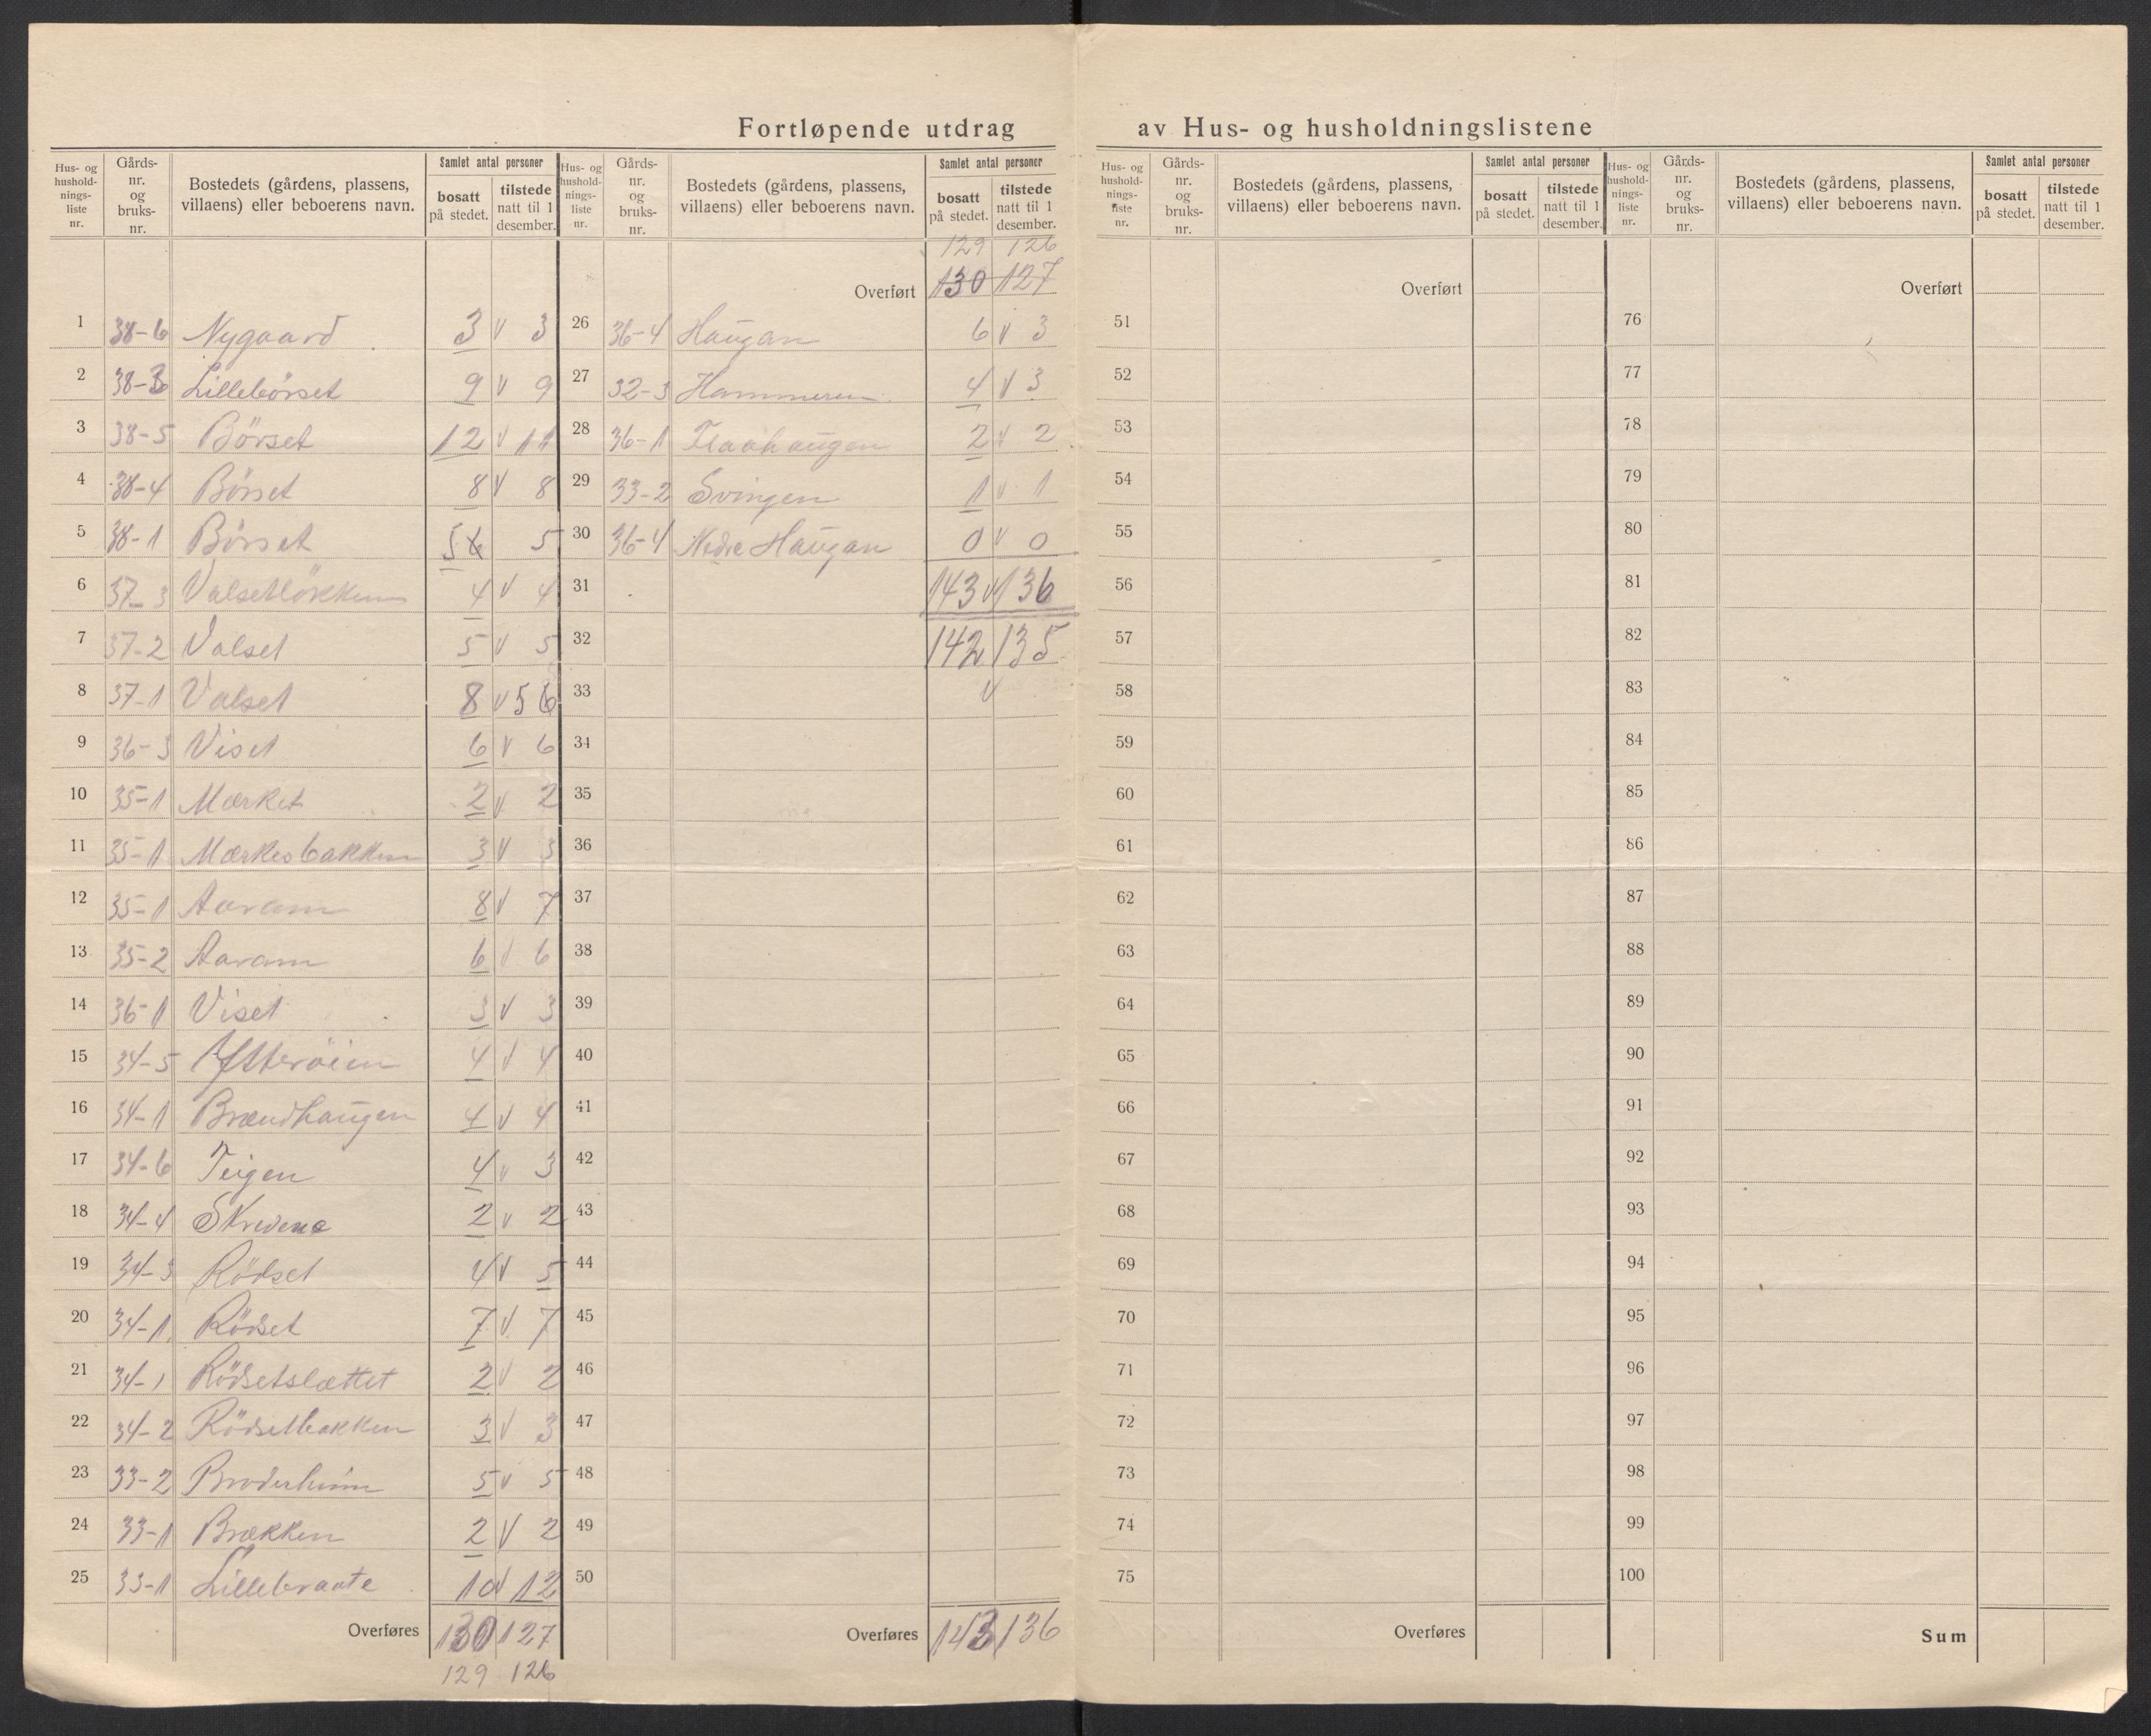 Fortløpende utdrag av Hus- og husholdningslistene
Hus- og hushold-nings-liste nr. | Gårds-nr. og bruks-nr. | Bostedets (gårdens, plassens, villaens) eller beboerens navn. | Samlet antal personer bosatt på stedet. | tilstede natt til 1 desember.
1 38-6 Nygaard 3 v 3
2 38-3 Lillebörset 9 v 9
3 38-5 Börset 12 v 11
4 38-4 Börset 8 v 8
5 38-1 Börset 5 6 5
6 37-3 Valsetlökken 4 v 4
7 37-2 Valset 5 v 5
8 37-1 Valset 8 v 5 6
9 36-3 Viset 6 v 6
10 35-1 Mærket 2 v 2
11 35-1 Mærkesbakken 3 v 3
12 35-1 Aaram 8 v 7
13 35-2 Aaram 6 v 6
14 36-1 Viset 3 v 3
15 34-5 Ytteröien 4 v 4
16 34-1 Brændhaugen 4 v 4
17 34-6 Teigen 4 v 3
18 34-4 Skredene 2 v 2
19 34-3 Rödset 4 v 5
20 34-1 Rödset 7 v 7
21 34-1 Rödsetslættet 2 v 2
22 34-2 Rödsetbakken 3 v 3
23 33-2 Broderheim 5 v 5
24 33-1 Brækken 2 v 2
25 33-1 Lillebraate 10 v 12
Overføres 130 127
129 126
Hus- og hushold-nings-liste nr. | Gårds-nr. og bruks-nr. | Bostedets (gårdens, plassens, villaens) eller beboerens navn. | Samlet antal personer bosatt på stedet. | tilstede natt til 1 desember.
129 126
Overført 130 127
26 36-4 Haugan 6 v 3
27 32-3 Hammeren 4 v 3
28 36-1 2 v 2
29 33-2 Svingen 1 v 1
30 36-4 Nedre Haugan 0 v 0
31 143 v 136
32 142 135
33 v
34
35
36
37
38
39
40
41
42
43
44
45
46
47
48
49
50
Overføres 143 136
Hus- og hushold-nings-liste nr. | Gårds-nr. og bruks-nr. | Bostedets (gårdens, plassens, villaens) eller beboerens navn. | Samlet antal personer bosatt på stedet. | tilstede natt til 1 desember.
Overført
51
52
53
54
55
56
57
58
59
60
61
62
63
64
65
66
67
68
69
70
71
72
73
74
75
Overføres
Hus- og hushold-nings-liste nr. | Gårds-nr. og bruks-nr. | Bostedets (gårdens, plassens, villaens) eller beboerens navn. | Samlet antal personer bosatt på stedet. | tilstede natt til 1 desember.
Overført
76
77
78
79
80
81
82
83
84
85
86
87
88
89
90
91
92
93
94
95
96
97
98
99
100
Sum